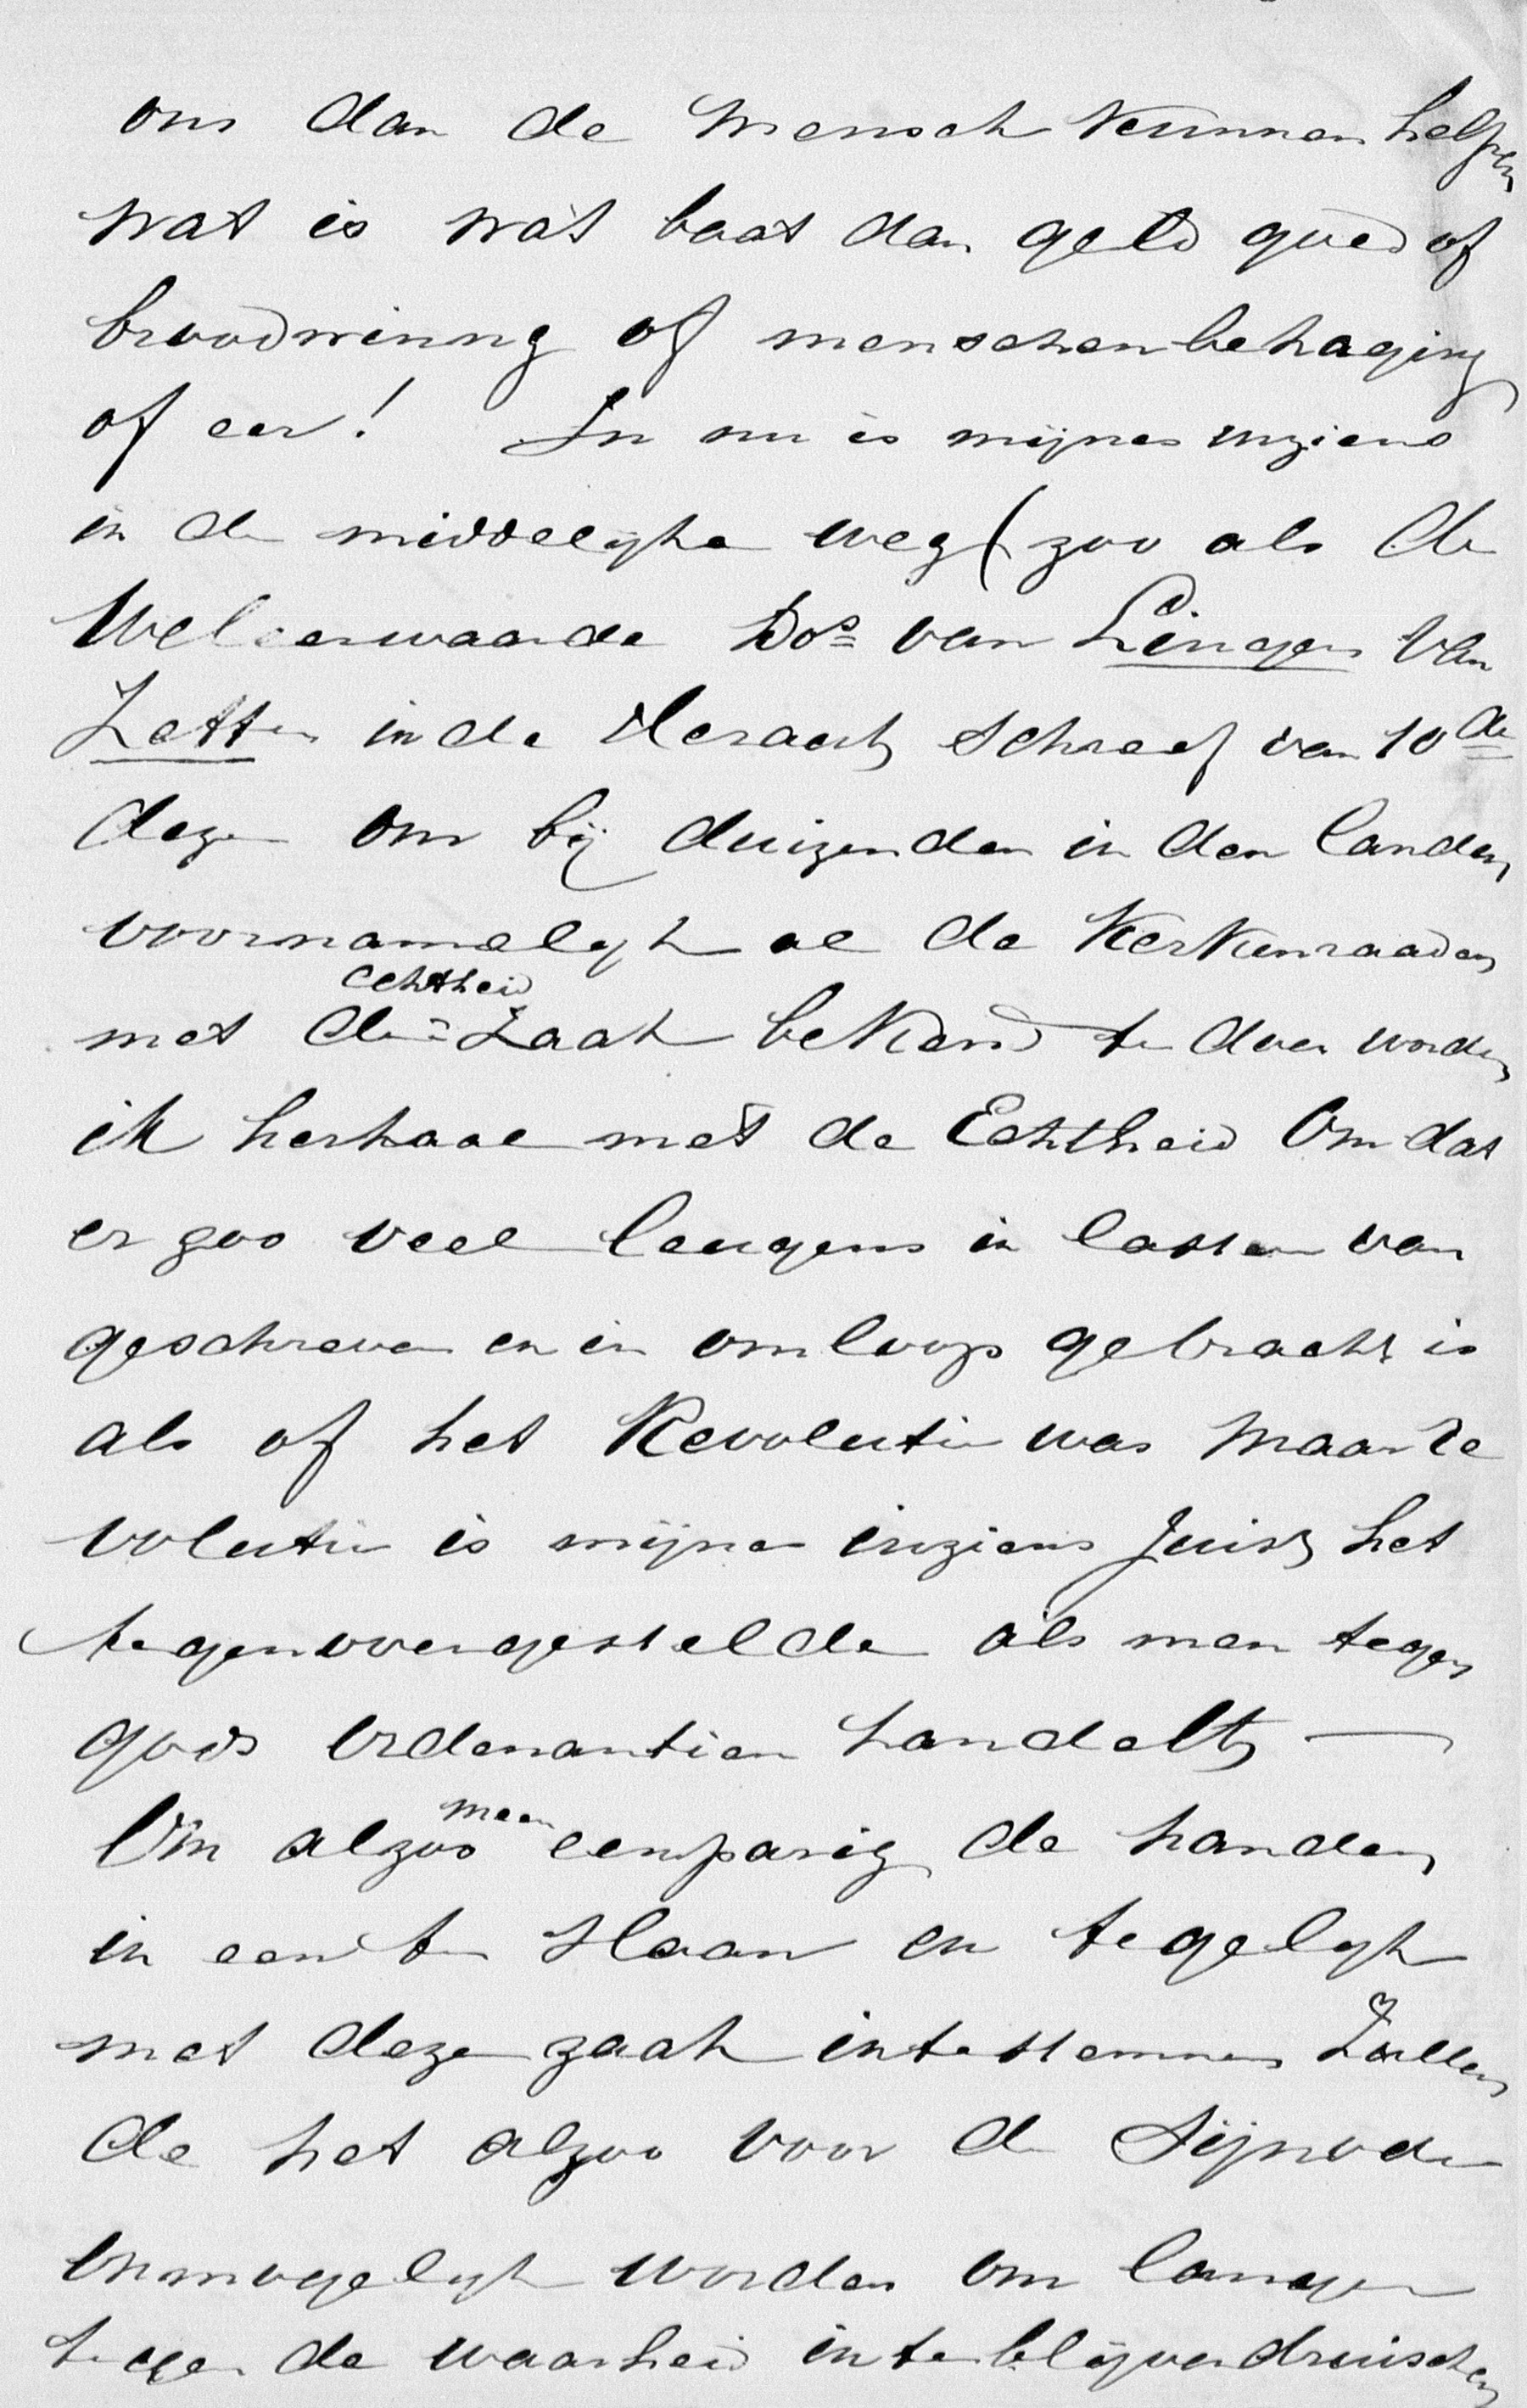 ons dan de mensch kunnen helpen
wat is wat baat dan geld goed of
broodwinng of menschenbehaging
of eer! En nu is mijnes inziens
in de middelijke weg (zoo als de
Weleerwaarde Dos van Lingen van
Zetten in de Heraut schreef van 10de
dezer om bij duizenden in den landen
voornamelijk al de Kerkenraaden
echtheid
met de = Zaak bekend te doen worden
ik herhaal met de Echtheid Om dat
er zoo veel leugens in laster van
geschreven en in omloop gebracht is
als of het Revolutie was maar Re
volutie is mijnes inziens juist het
tegenoovergestelde als men tegen
gods Ordenantien handelt —
maar
Om alzoo eenparig de handen
in een te slaan en tegelijk
met deze zaak intestemmen Zoullen
de het alzoo voor de Sijnode
Onmogelijk worden om langer
tegen de waarheid inteblijven druischen